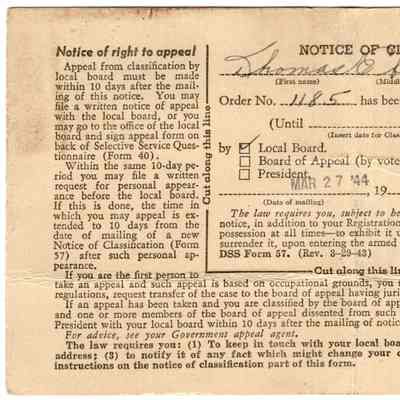 Notice of right to appeal
Appeal from classification by
local board must be made
within 10 days after the mail-
ing of this notice. You may
file a written notice of appeal
with the local board, or you
may go to the office of the local
board and sign appeal form on
back of Selective Service Ques-
tionnaire (Form 40).
Within the same 10-day pe-
riod you may file a written
request for personal appear-
ance before the local board.
If this is done, the time in
which you may appeal is ex-
tended to 10 days from the
date of mailing of a new
Notice of Classification (Form
57) after such personal ap-
pearance.
If you are the first person to
take an appeal and such appeal is based on occupational grounds, you
regulations, request transfer of the case to the board of appeal having
If an appeal has been taken and you are classified by the board of
and one or more members of the board of appeal dissented from such
President with your local board within 10 days after the mailing of notice
For advice, see your Government appeal agent.
The law requires you: (1) To keep in touch with your local
address; (3) to notify it of any fact which might change your
instructions on the notice of classification part of this form.
Cut along this line
NOTICE OF
Thomas
(First name)
Order No. 1185 has been
(Until
(Insert date for
by ☑ Local Board.
☐ Board of Appeal (by vote
☐ President
MAR 27 '44 19
(Date of mailing)
The law requires you, subject to
notice, in addition to your Registration
possession at all times—to exhibit it
surrender it, upon entering the armed
DSS Form 57. (Rev. 3-29-43)
Cut along this